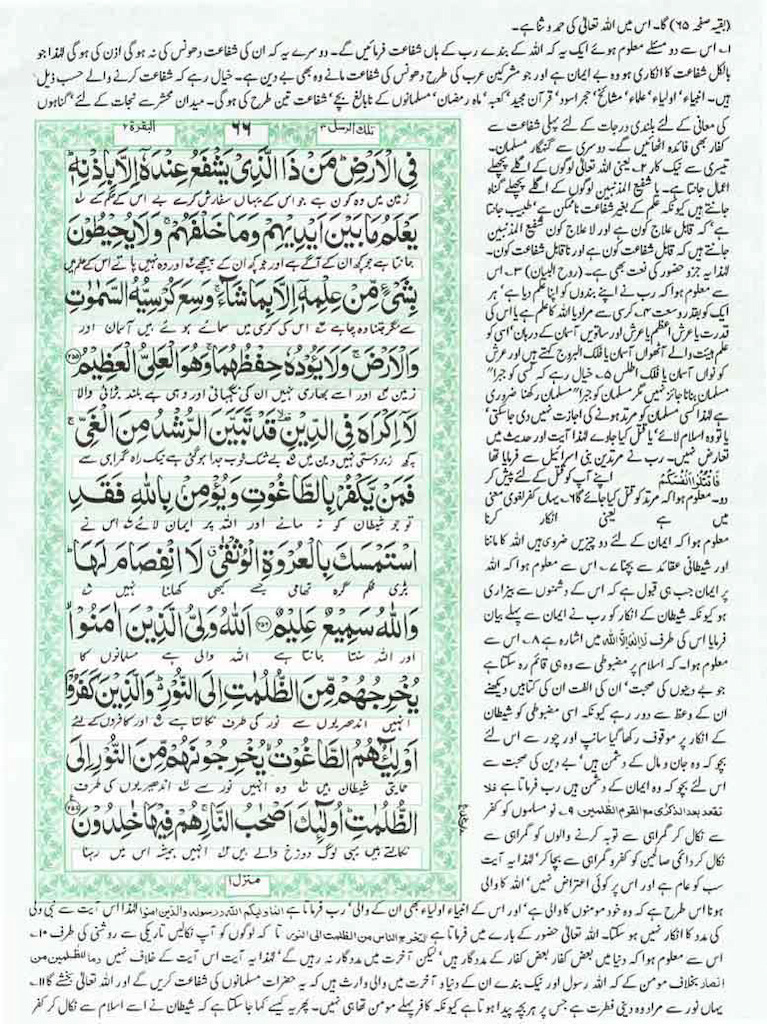 (بقیہ صفحہ ۶۵) گا۔ اس میں اللہ تعالیٰ کی حمد و ثنا ہے۔
۱۔ اس سے دو مسئلے معلوم ہوئے ایک یہ کہ اللہ کے بندے رب کے ہاں شفاعت فرمائیں گے۔ دوسرے یہ کہ ان کی شفاعت دھونس کی نہ ہوگی اذن کی ہوگی لہٰذا جو
بالکل شفاعت کا انکاری ہو وہ بے ایمان ہے اور جو مشرکین عرب کی طرح دھونس کی شفاعت مانے وہ بھی بے دین ہے۔ خیال رہے کہ شفاعت کرنے والے حسب ذیل
ہیں۔ انبیاء، اولیاء، علماء، مشائخ، حجر اسود، قرآن مجید، کعبہ، ماہ رمضان، مسلمانوں کے نابالغ بچے، شفاعت تین طرح کی ہوگی۔ میدان محشر سے نجات کے لئے، گناہوں
کی معافی کے لئے بلندی درجات کے لئے پہلی شفاعت سے
کفار بھی فائدہ اٹھائیں گے۔ دوسری سے گنہگار مسلمان۔
تیسری سے نیک کار ۲۔ یعنی اللہ تعالیٰ لوگوں کے اگلے پچھلے
اعمال جانتا ہے۔ یا شفیع المذنبین لوگوں کے اگلے پچھلے گناہ
جانتے ہیں کیونکہ علم کے بغیر شفاعت ناممکن ہے، طبیب جانتا
ہے، کہ قابل علاج کون ہے اور لا علاج کون شفیع المذنبین
جانتے ہیں کہ قابل شفاعت کون ہے اور ناقابل شفاعت کون۔
لہٰذا یہ جزو حضور کی نعت بھی ہے۔ (روح البیان) ۳۔ اس
سے معلوم ہوا کہ رب نے اپنے بندوں کو اپنا علم دیا ہے، ہر
ایک کو بقدر وسعت ۴۔ کرسی سے مراد یا اللہ کا علم ہے یا اس کی
قدرت یا عرش اعظم یا عرش اور ساتویں آسمان کے درمیان، اسی کو
علم ہیئت والے آٹھواں آسمان یا فلک البروج کہتے ہیں اور عرش
کو نواں آسمان یا فلک اطلس ۵۔ خیال رہے کہ کسی کو جبراً
مسلمان بنانا جائز نہیں مگر مسلمان کو جبراً مسلمان رکھنا ضروری
ہے لہٰذا کسی مسلمان کو مرتد ہونے کی اجازت نہیں دی جاسکتی،
یا تو وہ اسلام لائے، یا قتل کیا جاوے لہٰذا آیت اور حدیث میں
تعارض نہیں۔ رب نے مرتدین بنی اسرائیل سے فرمایا تھا
فَاقْتُلُوْٓا اَنْفُسَكُمْ اپنے آپ کو قتل کے لئے پیش کر
دو۔ معلوم ہوا کہ مرتد کو قتل کیا جائے گا ۶۔ یہاں کفر لغوی معنی
میں ہے یعنی انکار کرنا
معلوم ہوا کہ ایمان کے لئے دو چیزیں ضروری ہیں اللہ کا ماننا
اور شیطانی عقائد سے بچنا ۷۔ اس سے معلوم ہوا کہ اللہ
پر ایمان جب ہی قبول ہے کہ اس کے دشمنوں سے بیزاری
ہو کیونکہ شیطان کے انکار کو رب نے ایمان سے پہلے بیان
فرمایا اس کی طرف لا الٰہ الا اللہ میں اشارہ ہے ۸۔ اس سے
معلوم ہوا۔ کہ اسلام پر مضبوطی سے وہ ہی قائم رہ سکتا ہے
جو بے دینوں کی صحبت، ان کی الفت ان کی کتابیں دیکھنے
ان کے وعظ سے دور رہے کیونکہ اسی مضبوطی کو شیطان
کے انکار پر موقوف رکھا گیا سانپ اور چور سے اس لئے
بچو کہ وہ جان و مال کے دشمن ہیں، بے دین کی صحبت سے
اس لئے بچو کہ وہ ایمان کے دشمن ہیں رب فرماتا ہے فلا
تقعد بعد الذکریٰ مع القوم الظلمین ۹۔ نو مسلموں کو کفر
سے نکال کر گمراہی سے توبہ کرنے والوں کو گمراہی سے
نکال کر دائمی صالحین کو کفر و گمراہی سے بچا کر، لہٰذا یہ آیت
سب کو عام ہے اور اس پر کوئی اعتراض نہیں، اللہ کا والی
تلك الرسل ۳ ۶۶ البقرة ۲
فِی الْاَرْضِ ؕ مَنْ ذَا الَّذِیْ یَشْفَعُ عِنْدَهٗۤ اِلَّا بِاِذْنِهٖ ؕ
زمین میں وہ کون ہے جو اس کے یہاں سفارش کرے بے اس کے حکم کے
یَعْلَمُ مَا بَیْنَ اَیْدِیْهِمْ وَمَا خَلْفَهُمْ ۚ وَلَا یُحِیْطُوْنَ
جانتا ہے جو کچھ ان کے آگے ہے اور جو کچھ ان کے پیچھے اور وہ نہیں پاتے اس کے علم میں
بِشَیْءٍ مِّنْ عِلْمِهٖۤ اِلَّا بِمَا شَآءَ ۚ وَسِعَ كُرْسِیُّهُ السَّمٰوٰتِ
سے مگر جتنا وہ چاہے اس کی کرسی میں سمائے ہوئے ہیں آسمان اور
وَالْاَرْضَ ۚ وَلَا یَـُٔوْدُهٗ حِفْظُهُمَا ۚ وَهُوَ الْعَلِیُّ الْعَظِیْمُ ۲۵۵
زمین اور اسے بھاری نہیں ان کی نگہبانی اور وہی ہے بلند بڑائی والا
لَاۤ اِكْرَاهَ فِی الدِّیْنِ ۙ قَدْ تَّبَیَّنَ الرُّشْدُ مِنَ الْغَیِّ ۚ
کچھ زبردستی نہیں دین میں بے شک خوب جدا ہو گئی ہے نیک راہ گمراہی سے
فَمَنْ یَّكْفُرْ بِالطَّاغُوْتِ وَیُؤْمِنْۢ بِاللّٰهِ فَقَدِ
تو جو شیطان کو نہ مانے اور اللہ پر ایمان لائے اس نے
اسْتَمْسَكَ بِالْعُرْوَةِ الْوُثْقٰی ۗ لَا انْفِصَامَ لَهَا ؕ
بڑی محکم گرہ تھامی جسے کبھی کھلنا نہیں
وَاللّٰهُ سَمِیْعٌ عَلِیْمٌ ۲۵۶ اَللّٰهُ وَلِیُّ الَّذِیْنَ اٰمَنُوْا ۙ
اور اللہ سنتا جانتا ہے اللہ والی ہے مسلمانوں کا
یُخْرِجُهُمْ مِّنَ الظُّلُمٰتِ اِلَی النُّوْرِ ؕ۬ وَالَّذِیْنَ كَفَرُوْۤا
انہیں اندھیریوں سے نور کی طرف نکالتا ہے اور کافروں کے لئے
اَوْلِیٰٓـُٔهُمُ الطَّاغُوْتُ ۙ یُخْرِجُوْنَهُمْ مِّنَ النُّوْرِ اِلَی
حمایتی شیطان ہیں وہ انہیں نور سے اندھیریوں کی طرف
الظُّلُمٰتِ ؕ اُولٰٓىِٕكَ اَصْحٰبُ النَّارِ ۚ هُمْ فِیْهَا خٰلِدُوْنَ
نکالتے ہیں یہی لوگ دوزخ والے ہیں انہیں ہمیشہ اس میں رہنا
منزل ۱
ہونا اس طرح ہے کہ وہ خود مومنوں کا والی ہے، اور اس کے انبیاء اولیاء بھی ان کے والی، رب فرماتا ہے انما ولیکم اللہ ورسولہ والذین امنوا لہٰذا اس آیت سے نبی ولی
کی مدد کا انکار نہیں ہو سکتا۔ اللہ تعالیٰ حضور کے بارے میں فرماتا ہے لتخرج الناس من الظلمٰت الی النور تا کہ لوگوں کو آپ نکالیں تاریکی سے روشنی کی طرف ۱۰۔
اس سے معلوم ہوا کہ دنیا میں بعض کفار بعض کفار کے مددگار ہیں، لیکن آخرت میں مددگار نہ رہیں گے، لہٰذا یہ آیت اس آیت کے خلاف نہیں وما للظٰلمین من
انصار بخلاف مومن کے کہ اللہ رسول اور نیک بندے ان کے دنیا و آخرت میں والی وارث ہیں کہ یہ حضرات مسلمانوں کی شفاعت کریں گے اور اللہ تعالیٰ بخشے گا ۱۱۔
یہاں نور سے مراد وہ دینی فطرت ہے جس پر ہر بچہ پیدا ہوتا ہے کیونکہ کافر پہلے مومن تھا ہی نہیں۔ پھر یہ کیسے کہا جا سکتا ہے کہ شیطان نے اسے اسلام سے نکال کر کفر